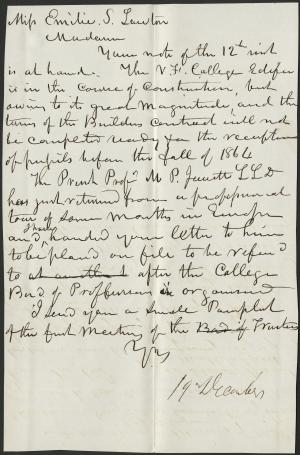 Miss Emilie. S. Lawton
Madam
Your note of the 12th inst
is at hand. The V. F. College Edifice
is in the Course of Construction, but
owing to its great Magnitude, and the
terms of the Builders Contract will not
be completed ready for the reception
of pupils before the Fall of 1864
The Presdt Profr M P. Jewett L L D
has just returned from a professional
tour of some months in Europe
and I have handed your letter to him
to be placed on file to be referd
to at another t after the College
Bord of Proffessors is organised
I send you a small Pamphlet
of the first Meeting of the Bord of Trustees
Yrs
19th December